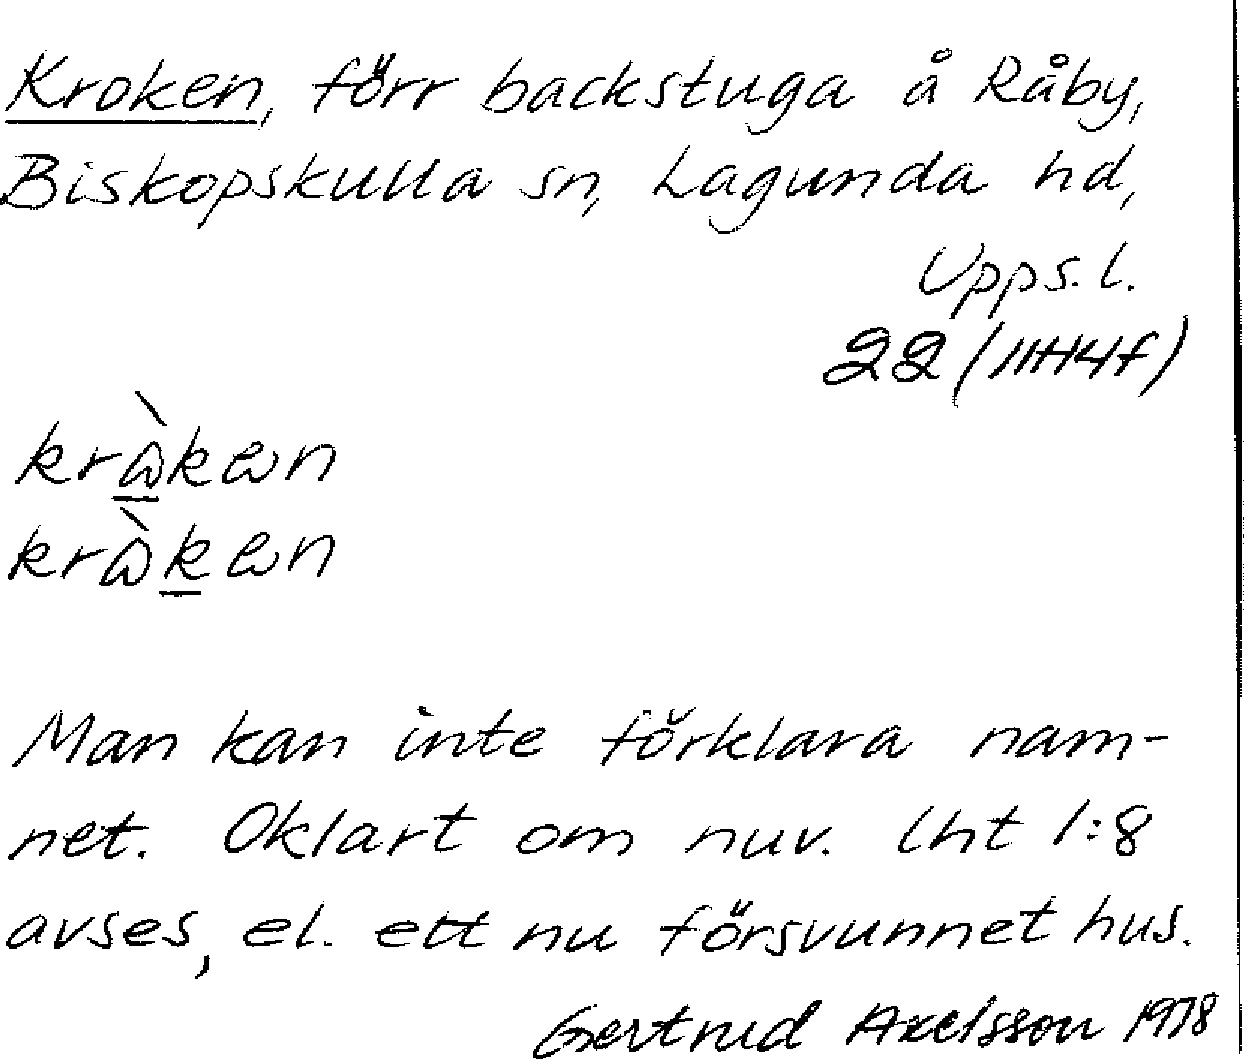 Kroken, förr backstuga å Råby,
Biskopskulla sn, Lagunda hd,
Upps. l.
22 (11H4f)
Man kan inte förklara nam-
net. Oklart om nuv. lht 1:8
avses, el. ett nu försvunnet hus.
Gertrud Axelsson 1978